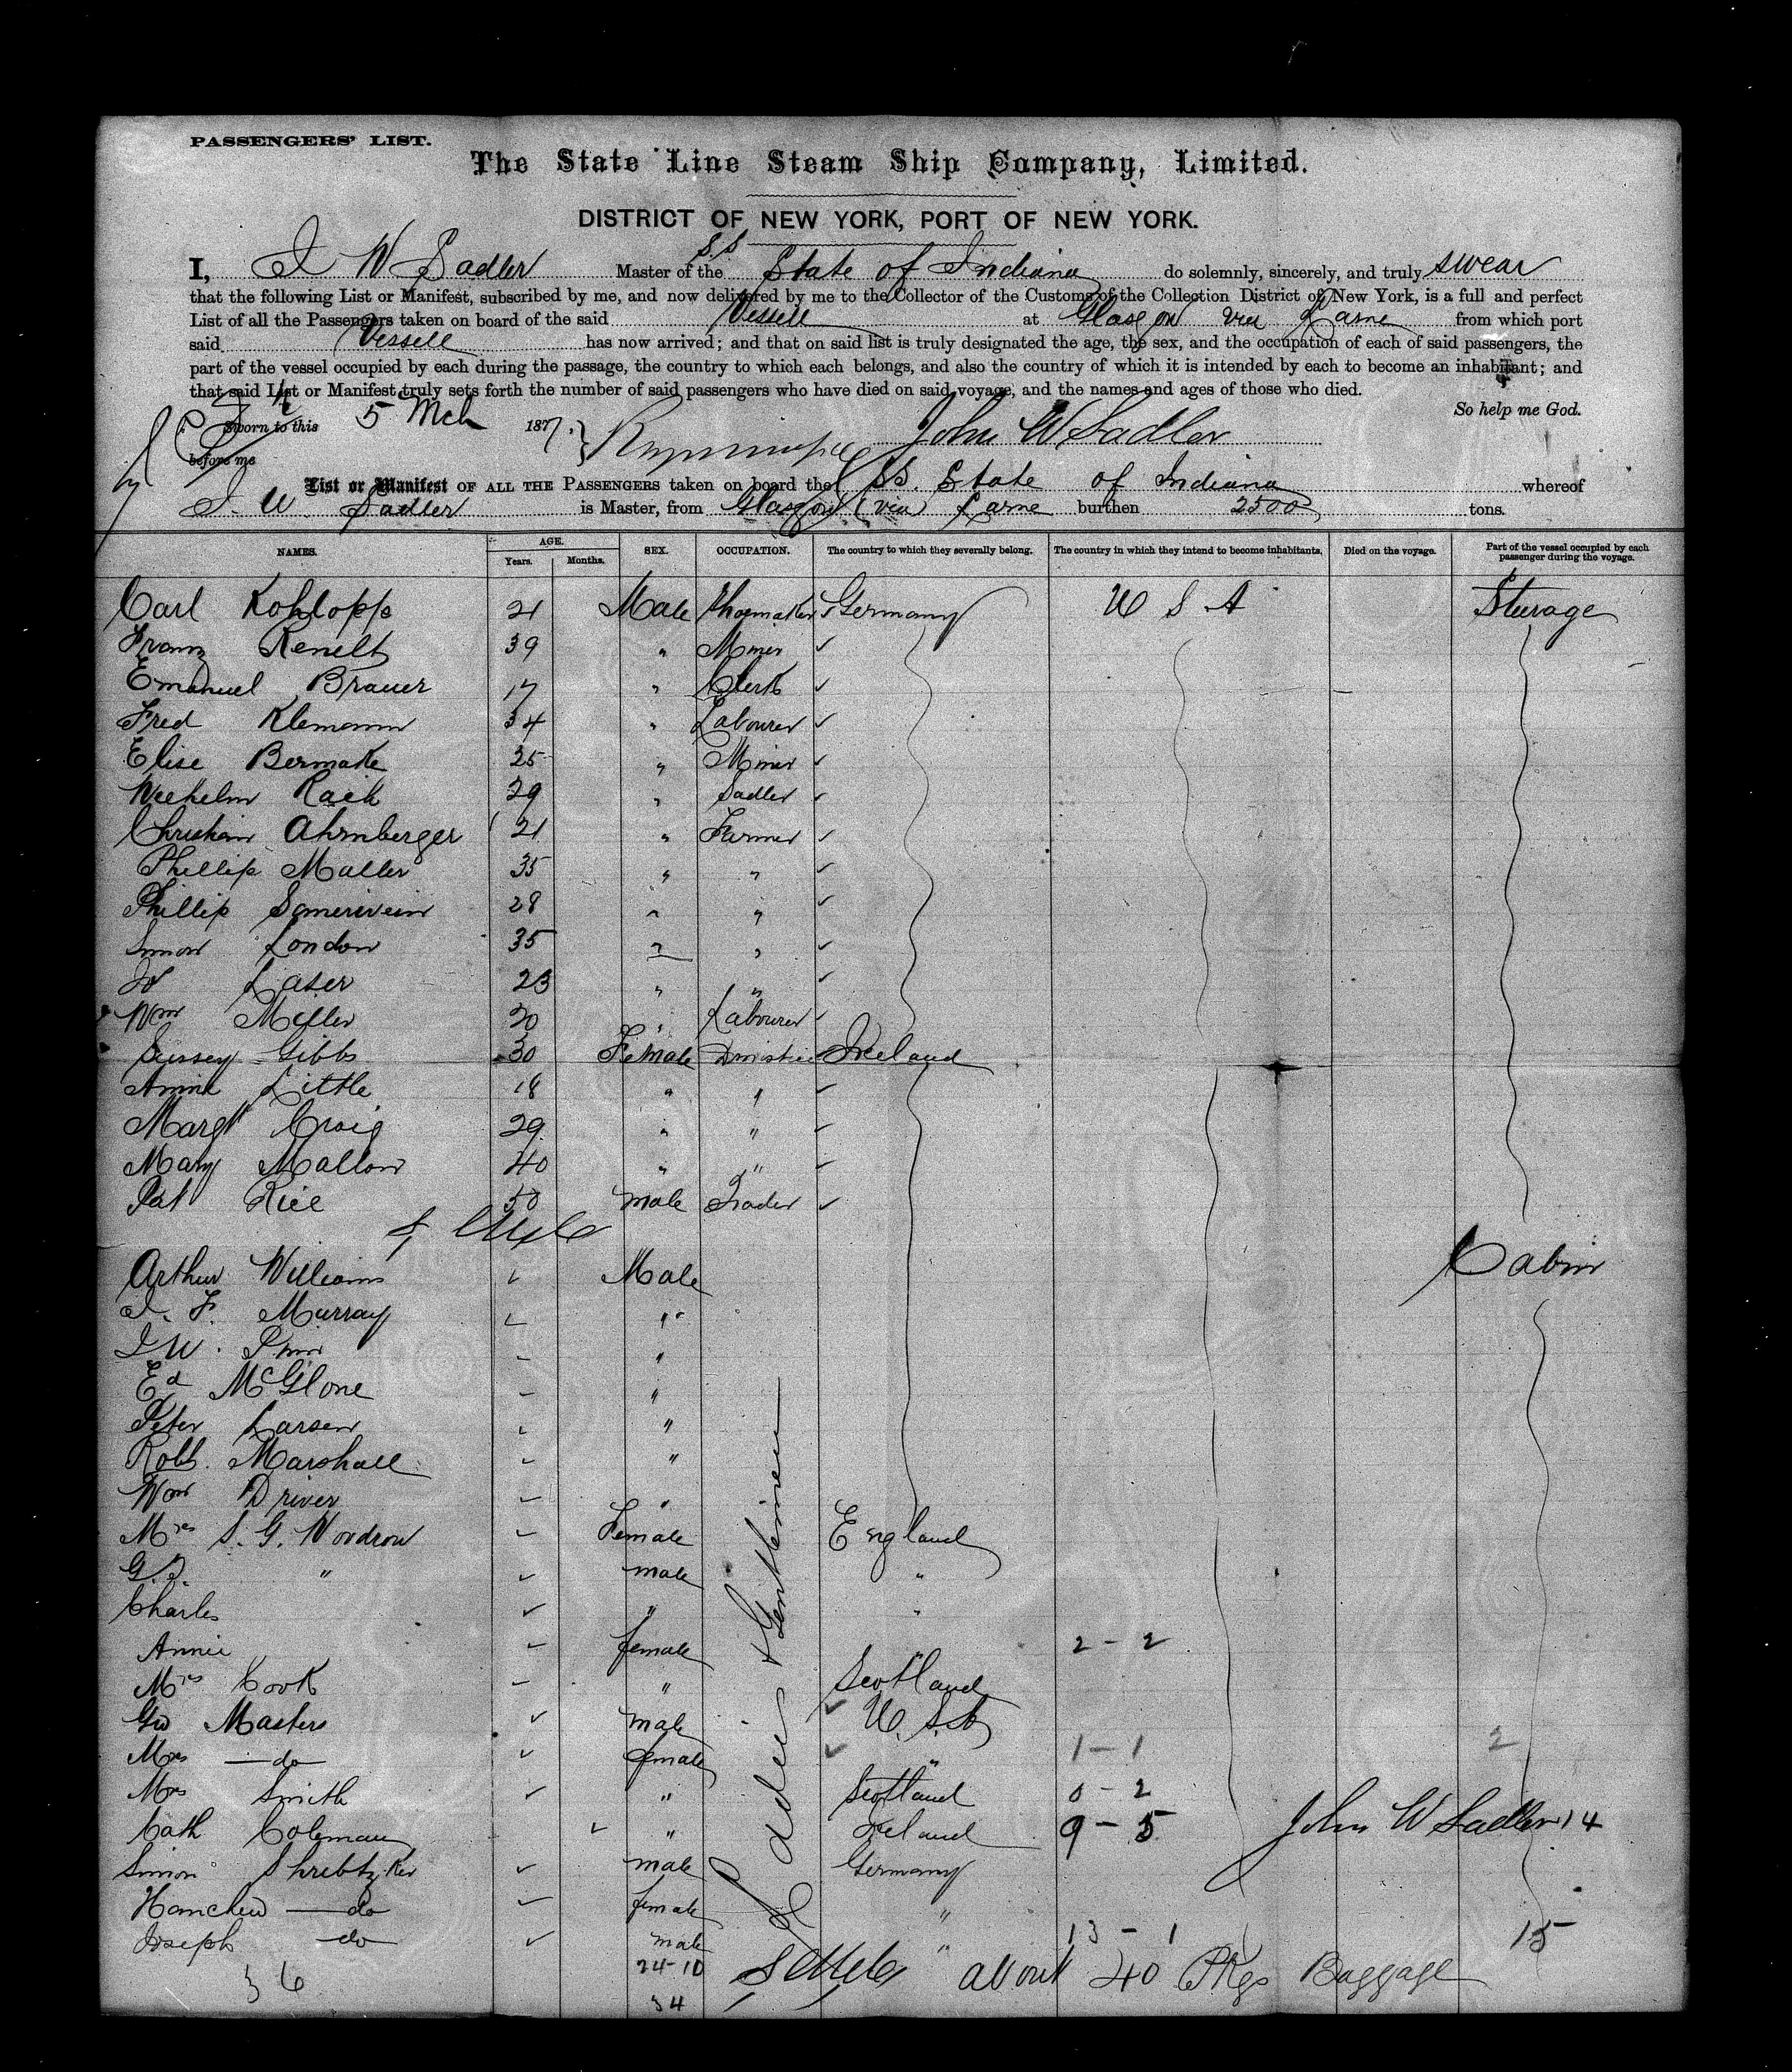 PASSENGERS' LIST.
The State Line Steam Ship Company, Limited.
DISTRICT OF NEW YORK, PORT OF NEW YORK.
I, J W Sadler Master of the S.S State of Indiana do solemnly, sincerely, and truly swear
that the following List or Manifest, subscribed by me, and now delivered by me to the Collector of the Customs of the Collection District of New York, is a full and perfect
List of all the Passengers taken on board of the said Vessell at Glasgow via Larne from which port
said Vessell has now arrived; and that on said list is truly designated the age, the sex, and the occupation of each of said passengers, the
part of the vessel occupied by each during the passage, the country to which each belongs, and also the country of which it is intended by each to become an inhabitant; and
that said List or Manifest truly sets forth the number of said passengers who have died on said voyage, and the names and ages of those who died.
So help me God.
Sworn to this 5 Mch 1877. John W Sadler
before me
List or Manifest OF ALL THE PASSENGERS taken on board the SS. State of Indiana whereof
J. W. Sadler is Master, from Glasgow (via) Larne burthen 2500 tons.
NAMES. AGE. Years. Months. SEX. OCCUPATION. The country to which they severally belong. The country in which they intend to become inhabitants. Died on the voyage. Part of the vessel occupied by each passenger during the voyage.
Carl Kohlopp 21 Male Shoemaker Germany U S A Steerage
Franz Renelt 39 " Miner
Emanuel Brauer 17 " Clerk
Fred Klemann 34 " Labourer
Elise Bermake 25 " Miner
Wilhelm Raik 29 " Sadler
Christian Ahrnberger 21 " Farmer
Phillip Maller 35 " "
Phillip 28 " "
Simon London 35 " "
Laser 23 " "
Wm Miller 20 " Labourer
Gibbs 30 Female Domestic Ireland
Annie Little 18 " "
Margt Craig 29 " "
Mary Mallon 40 " "
Pat Rice 50 male Trader
Arthur Williams Male Cabin
J. F. Murray "
J W. "
Ed McGlone "
Peter Larsen "
Robt. Marshall "
Wm Driver "
Mrs S. G. Woodrow Female England
G. " male "
Charles " "
Annie female 2 - 2
Mrs Cook " Scotland
Geo Masters male U.S.A
Mrs do female " 1 - 1 2
Mrs Smith " Scotland 0 - 2
Cath Coleman " Ireland 9 - 5 John W Sadler 14
Simon male Germany
do female "
Joseph do male " 13 - 1 15
Ladies & Gentlemen
24-10 about 40 Pkgs Baggage
36 34